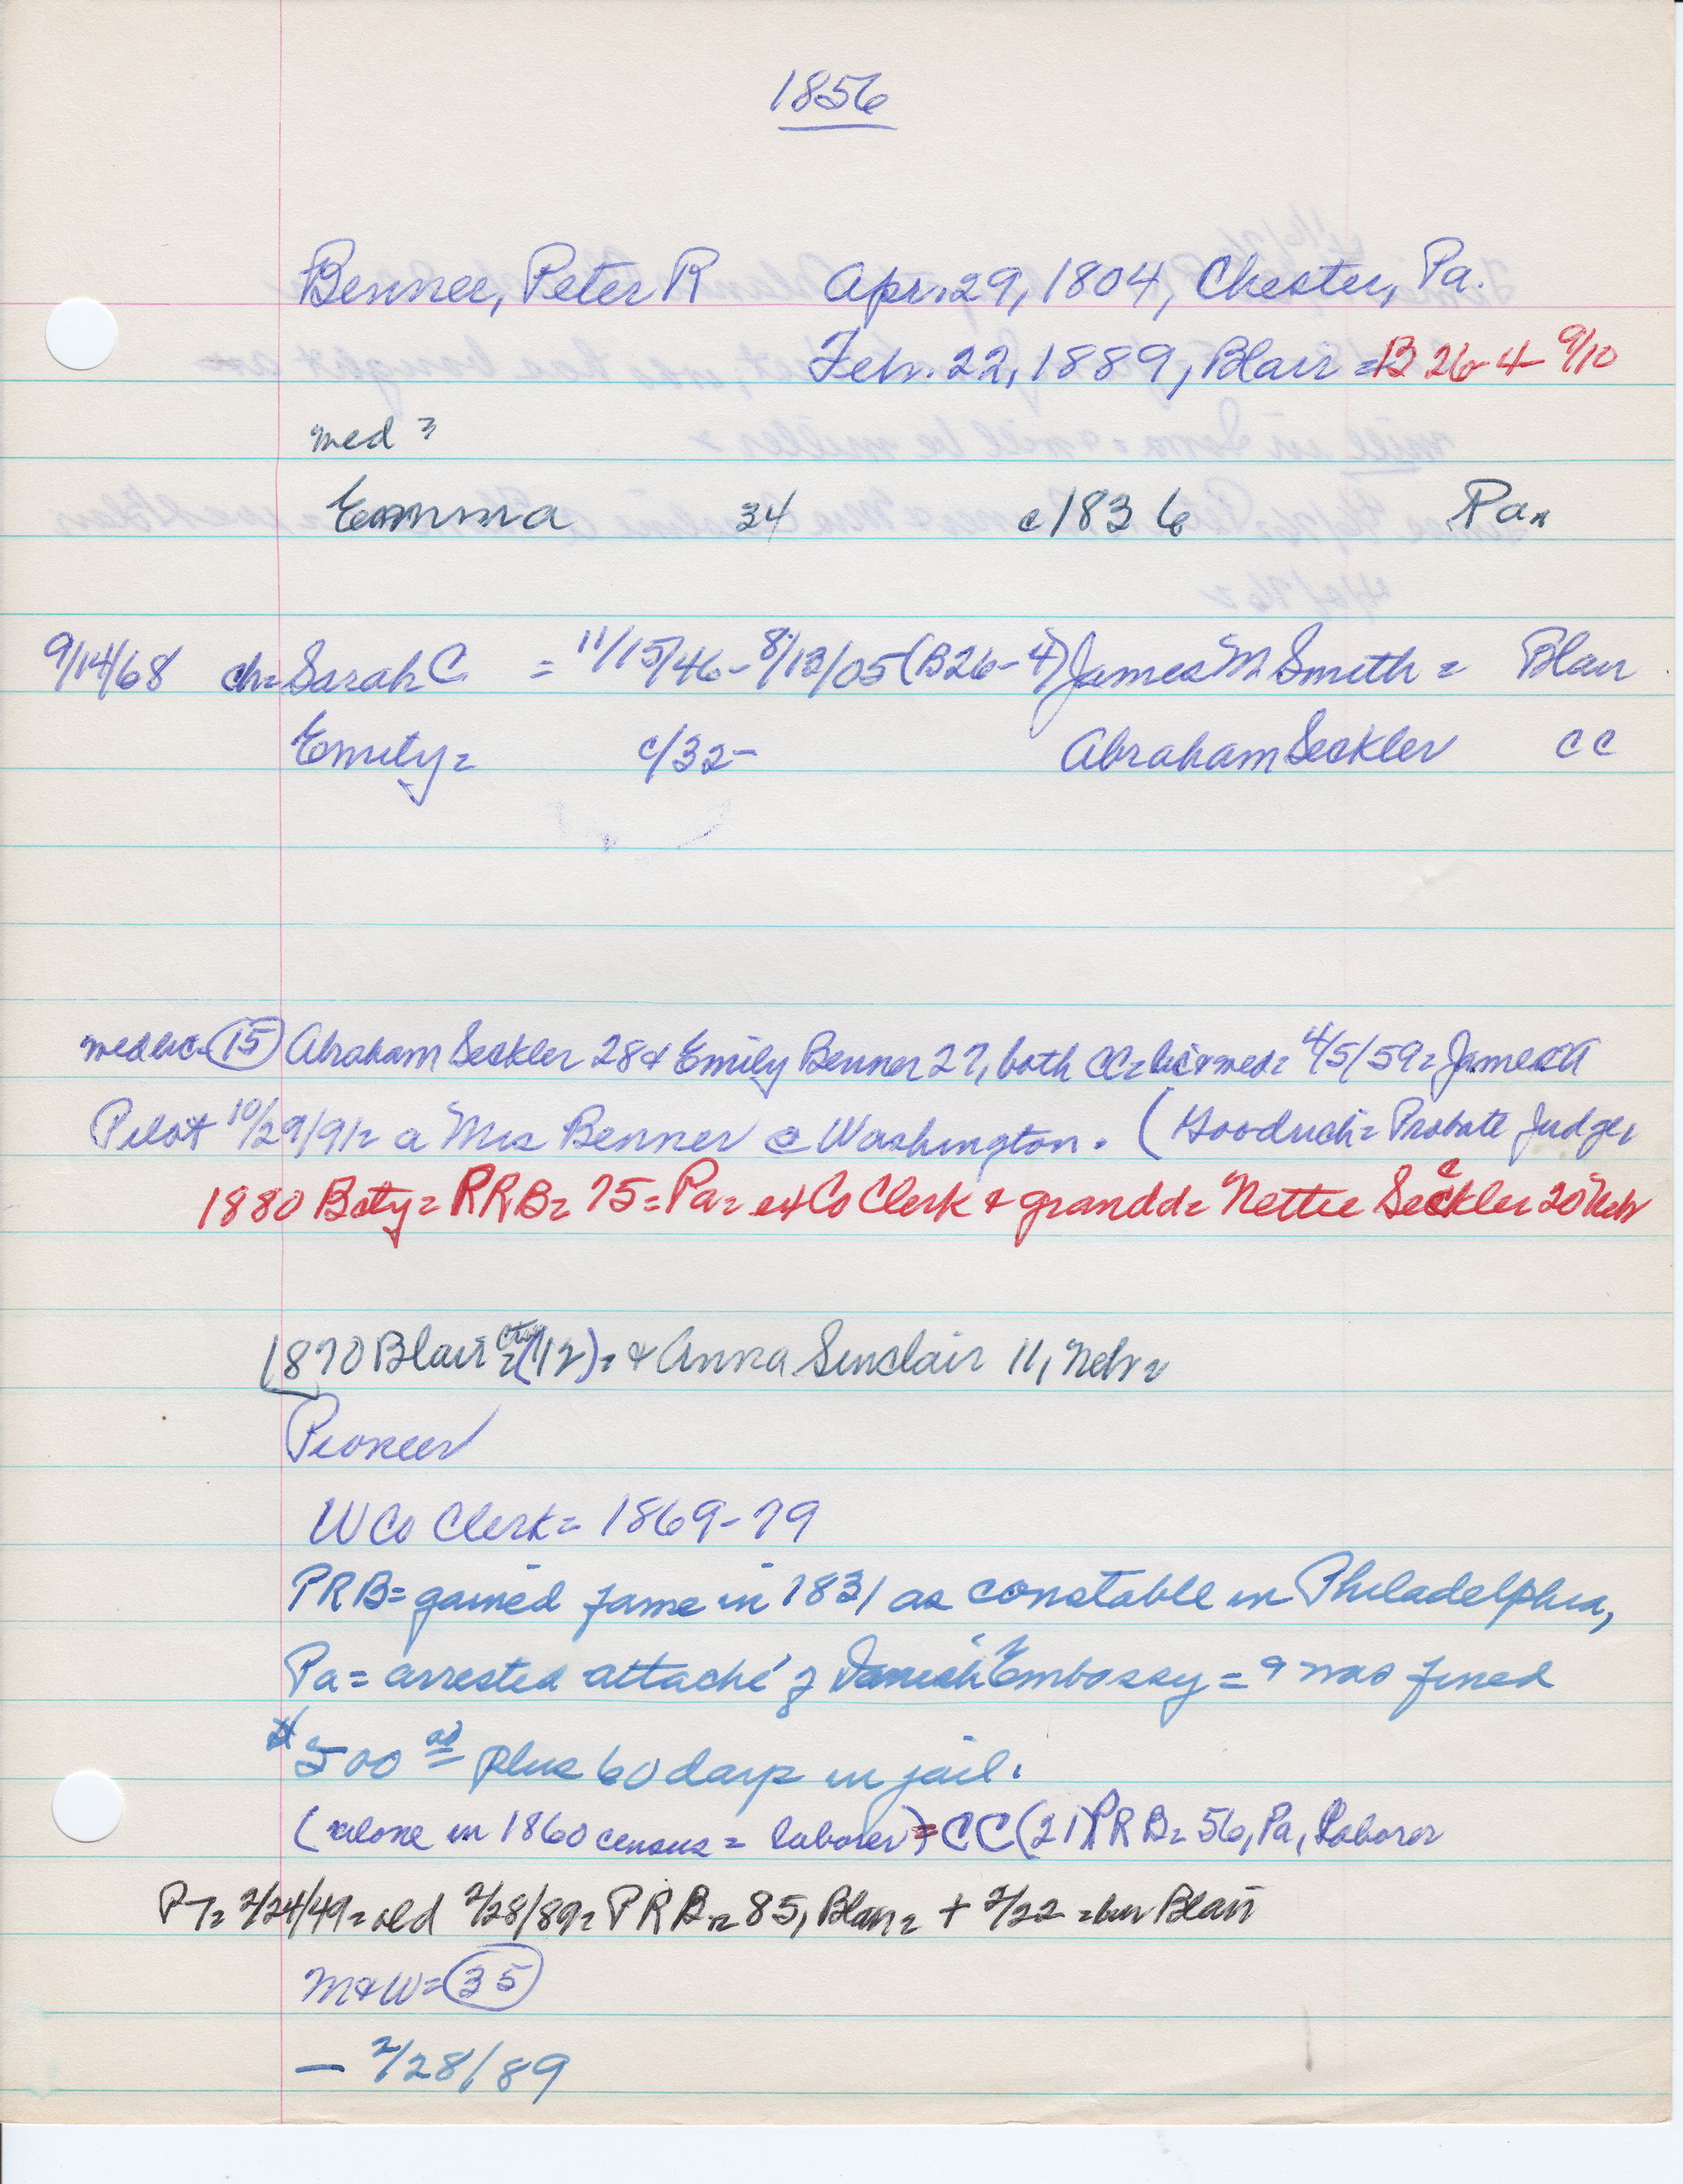 1856
Benner, Peter R Apr. 29, 1804, Chester, Pa.
Feb. 22, 1889, Blair = B 26-4- 9/10
med ?
Emma 34 c/1836 Pa.
9/14/68 ch= Sarah C. = 11/15/46-8/13/05 (B26-4) James M Smith = Blair
Emily = c/32- Abraham Seckler CC
med lic= 15 Abraham Seckler 28 & Emily Benner 27, both CC= lic & med= 4/5/59= James A
Pilot 10/29/91= a Mrs Benner @ Washington. (Goodrich= Probate Judge,
1880 Bcty= RRB= 75= Pa= ex Co Clerk & grandd= Nettie Seckler 20 Neb
1870 Blair cty =(12)= & Anna Sinclair 11, Neb=
Pioneer
W Co Clerk= 1869-79
PRB= gained fame in 1831 as constable in Philadelphia,
Pa= arrested attaché of Danish Embassy= & was fined
$500 00 plus 60 days in jail.
(alone in 1860 census = laborer) = CC (21) PRB= 56, Pa, Laborer
PT= 2/24/49= old 2/28/89= PRB= 85, Blair= + 2/22 =bur Blair
M&W= 35
— 2/28/89